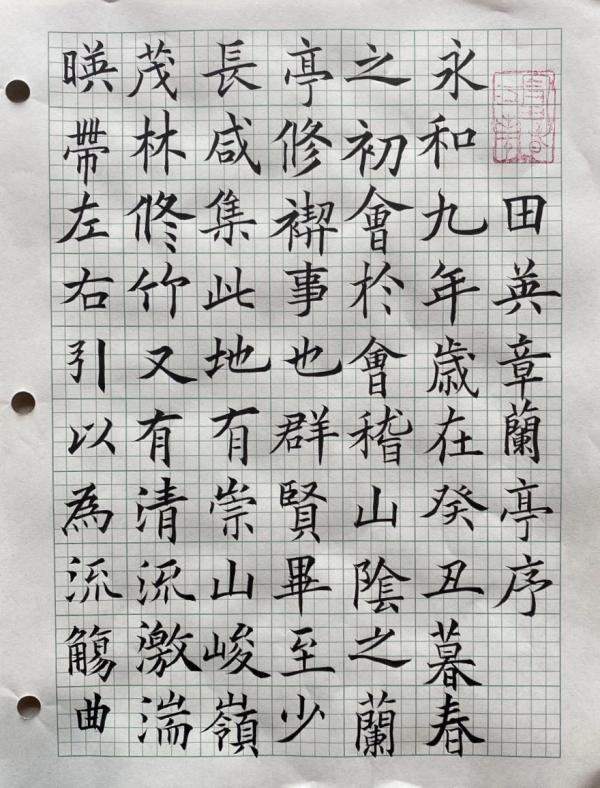 田英章蘭亭序
永和九年歳在癸丑暮春
之初會於會稽山陰之蘭
亭修禊事也群賢畢至少
長咸集此地有崇山峻嶺
茂林修竹又有清流激湍
暎帶左右引以為流觴曲